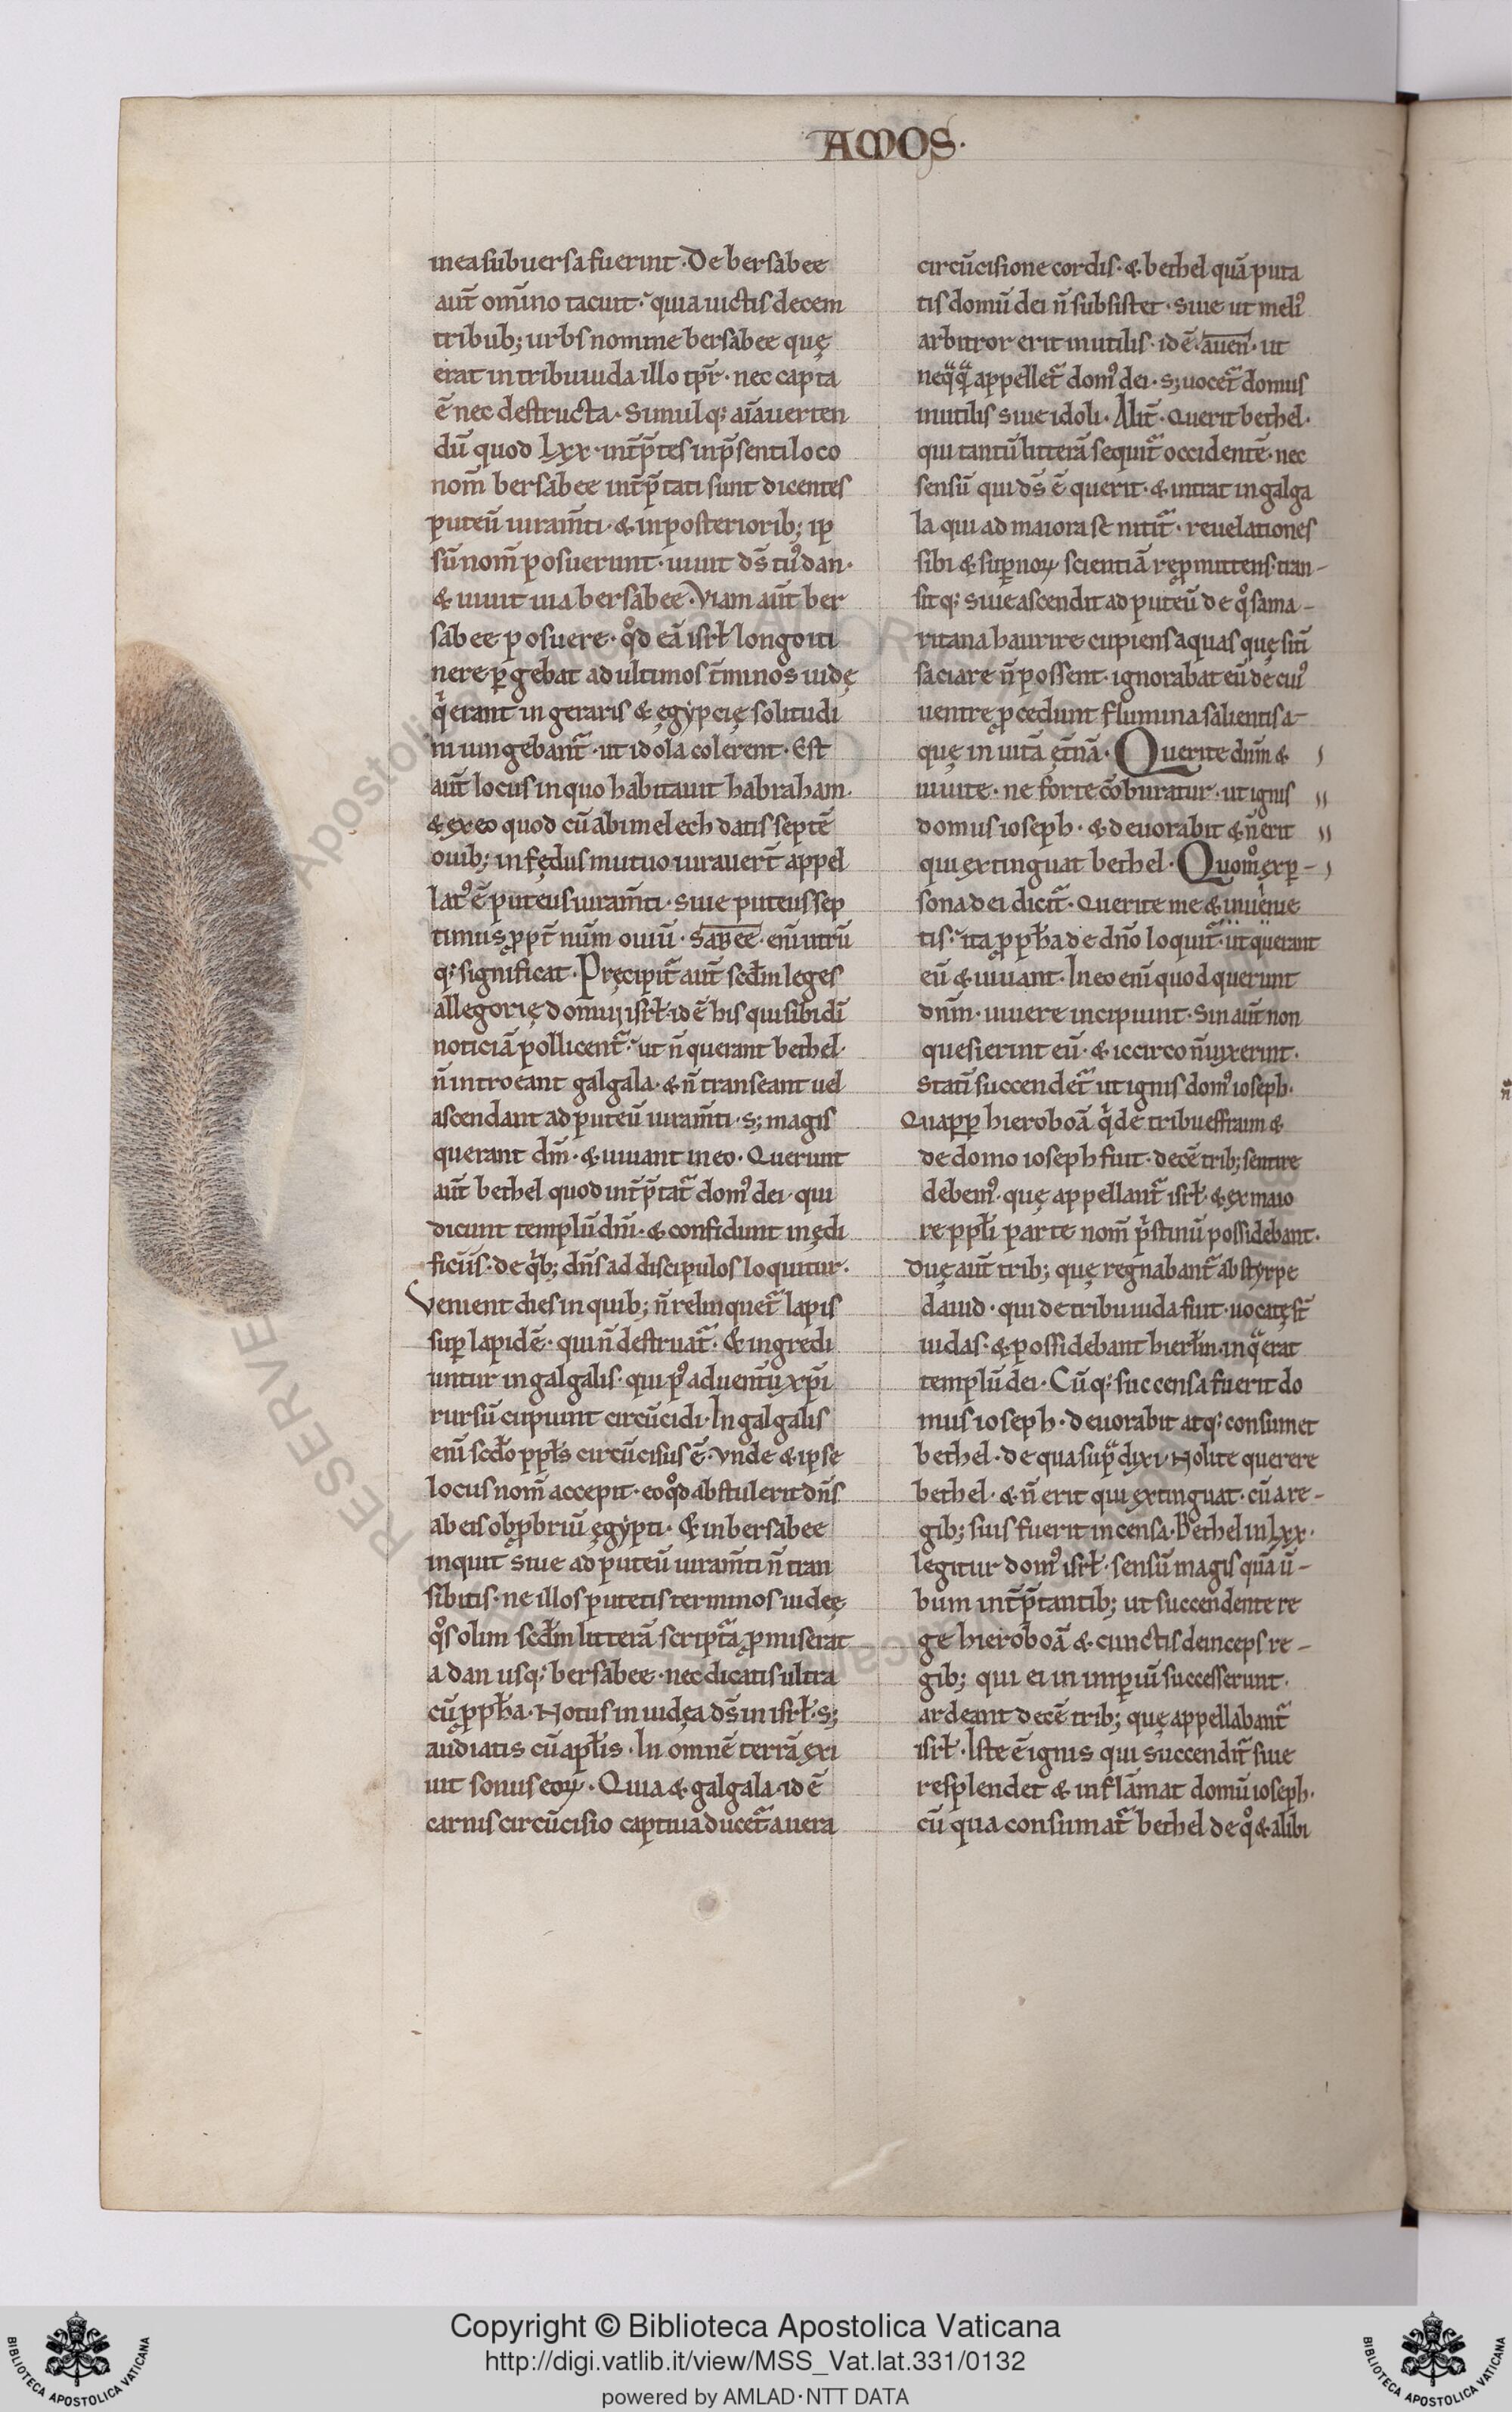 AMOS·
in ea subuersa fuerint · De bersabee
aut̄ omīno tacuit · quia uictis decem
tribub; urbs nomine bersabee quę
erat in tribu iuda illo tp̄r · nec capta
ē nec destructa · Simulq; aīaduerten
dū quod lxx · int̄p̄tes in p̄senti loco
nom̄ bersabee int̄p̄tati sunt dicentes
puteū iuram̄ti · & in posteriorib; ip
sū nom̄ posuerunt · uiuit ds̄ tuꝰ dan ·
& uiuit uia bersabee · Viam aut̄ ber
sabee posuere · qd̊ eā isrł longo iti
nere ꝑgebat ad ultimos t̄minos iudę
q̇ erant in geraris & ęgypcię solitudi
ni iungebant᷑ · ut idola colerent · Est
aut̄ locus in quo habitauit habraham ·
& ex eo quod cū abimelech datis septē
ouib; in fędus mutuo iurauert̄ appel
latꝰ ē puteus iuram̄ti · siue puteus sep
timus ꝓpt̄ num̄ ouiū · sabee · enī utrū
q; significat · Pręcipit᷑ aut̄ scd̄m leges
allegorię domui isrł · id ē his qui sibi dī
noticiā pollicent᷑ · ut n̄ querant bethel ·
n̄ introeant galgala · & n̄ transeant uel
ascendant ad puteū iuram̄ti · s; magis
querant dm̄ · & uiuant in eo · Querunt
aut̄ bethel quod int̄p̄tat᷑ domꝰ dei · qui
dicunt templū dn̄i · & confidunt in ędi
ficiis · de q̇b; dn̄s ad discipulos loquitur ·
Venient dies in quib; n̄ relinquet᷑ lapis
suꝑ lapidē · qui n̄ destruat᷑ · Et ingredi
untur in galgalis · qui pꝰ aduentū xp̄i
rursū cupiunt circūcidi · In galgalis
enī scd̄o ppłs circūcisus ē · vnde & ipse
locus nom̄ accepit · eo qd̊ abstulerit dn̄s
ab eis obꝓbriū ęgypti · Et in bersabee
inquit siue ad puteū iuram̄ti n̄ tran
sibitis · ne illos putetis terminos iudeę
qͦs olim scd̄m litterā script᷑a ꝓmiserat
a dan usq; bersabee · nec dicatis ultra
cū ꝓpħa · Notus in iudęa ds̄ in isrł · s;
audiatis cū apłis · In omnē terrā exi
uit sonus eoꝝ · Quia & galgala · id ē
carnis circūcisio captiua ducet᷑ a uera
circūcisione cordis · & bethel quā puta
tis domū dei n̄ subsistet · siue ut meliꝰ
arbitror erit inutilis · id ē · auen · ut
neqͣqͣ appellet᷑ domꝰ dei · s; uocet᷑ domus
inutilis siue idoli · Alit̄ · Querit bethel ·
qui tantū litterā sequit᷑ occidentē · nec
sensū qui ds̄ ē querit · & intrat in galga
la qui ad maiora se nitit᷑ · reuelationes
sibi & suꝑnoꝝ scientiā reꝓmittens · tran-
sitq; siue ascendit ad puteū de qͦ sama-
ritana haurire cupiens aquas quę sitī
saciare n̄ possent · ignorabat eū de cuiꝰ
uentre ꝓcedunt flumina salientis a-
quę in uitā ęt̄nā · Querite dn̄m &
uiuite · ne forte cōburatur · ut ignis
domus ioseph · & deuorabit & n̄ erit
qui extinguat bethel · Quom̊ ex ꝑ-
sona dei dicit᷑ · Querite me & inuenie
tis · ita ꝓpħa de dn̄o loquit᷑ · ut querant
eū & uiuant · In eo enī quod querunt
dn̄m · uiuere incipiunt · Sin aut̄ non
quesierint eū · & iccirco n̄ uixerint ·
Statī succendet᷑ ut ignis domꝰ ioseph ·
Quapp̱ hieroboā q̇ de tribu effraim &
de domo ioseph fuit · decē trib; sentire
debemꝰ · quę appellant᷑ isrł · & ex maio
re ppłi parte nom̄ ṗstinū possidebant ·
Duę aut̄ trib; quę regnabant᷑ ab styrpe
dauid · qui de tribu iuda fuit · uocatę st̄
iudas · & possidebant hierłm · in qͣ erat
templū dei · Cūq; succensa fuerit do
mus ioseph · deuorabit atq; consumet
bethel · de qua supͣ dixi · Nolite querere
bethel · & n̄ erit qui extinguat · cū a re-
gib; suis fuerit incensa · Bethel in lxx ·
legitur domꝰ isrł · sensū magis quā ū-
bum int̄p̄tantib; ut succendente re
ge hieroboā & cunctis deinceps re-
gib; qui ei in imꝑiū successerunt ·
ardeant decē trib; quę appellabant᷑
isrł · Iste ē ignis qui succendit᷑ siue
resplendet & inflāmat domū ioseph ·
cū qua consumat᷑ bethel de qͦ & alibi
Copyright © Biblioteca Apostolica Vaticana
http://digi.vatlib.it/view/MSS_Vat.lat.331/0132
powered by AMLAD·NTT DATA
BIBLIOTECA APOSTOLICA VATICANA
BIBLIOTECA APOSTOLICA VATICANA